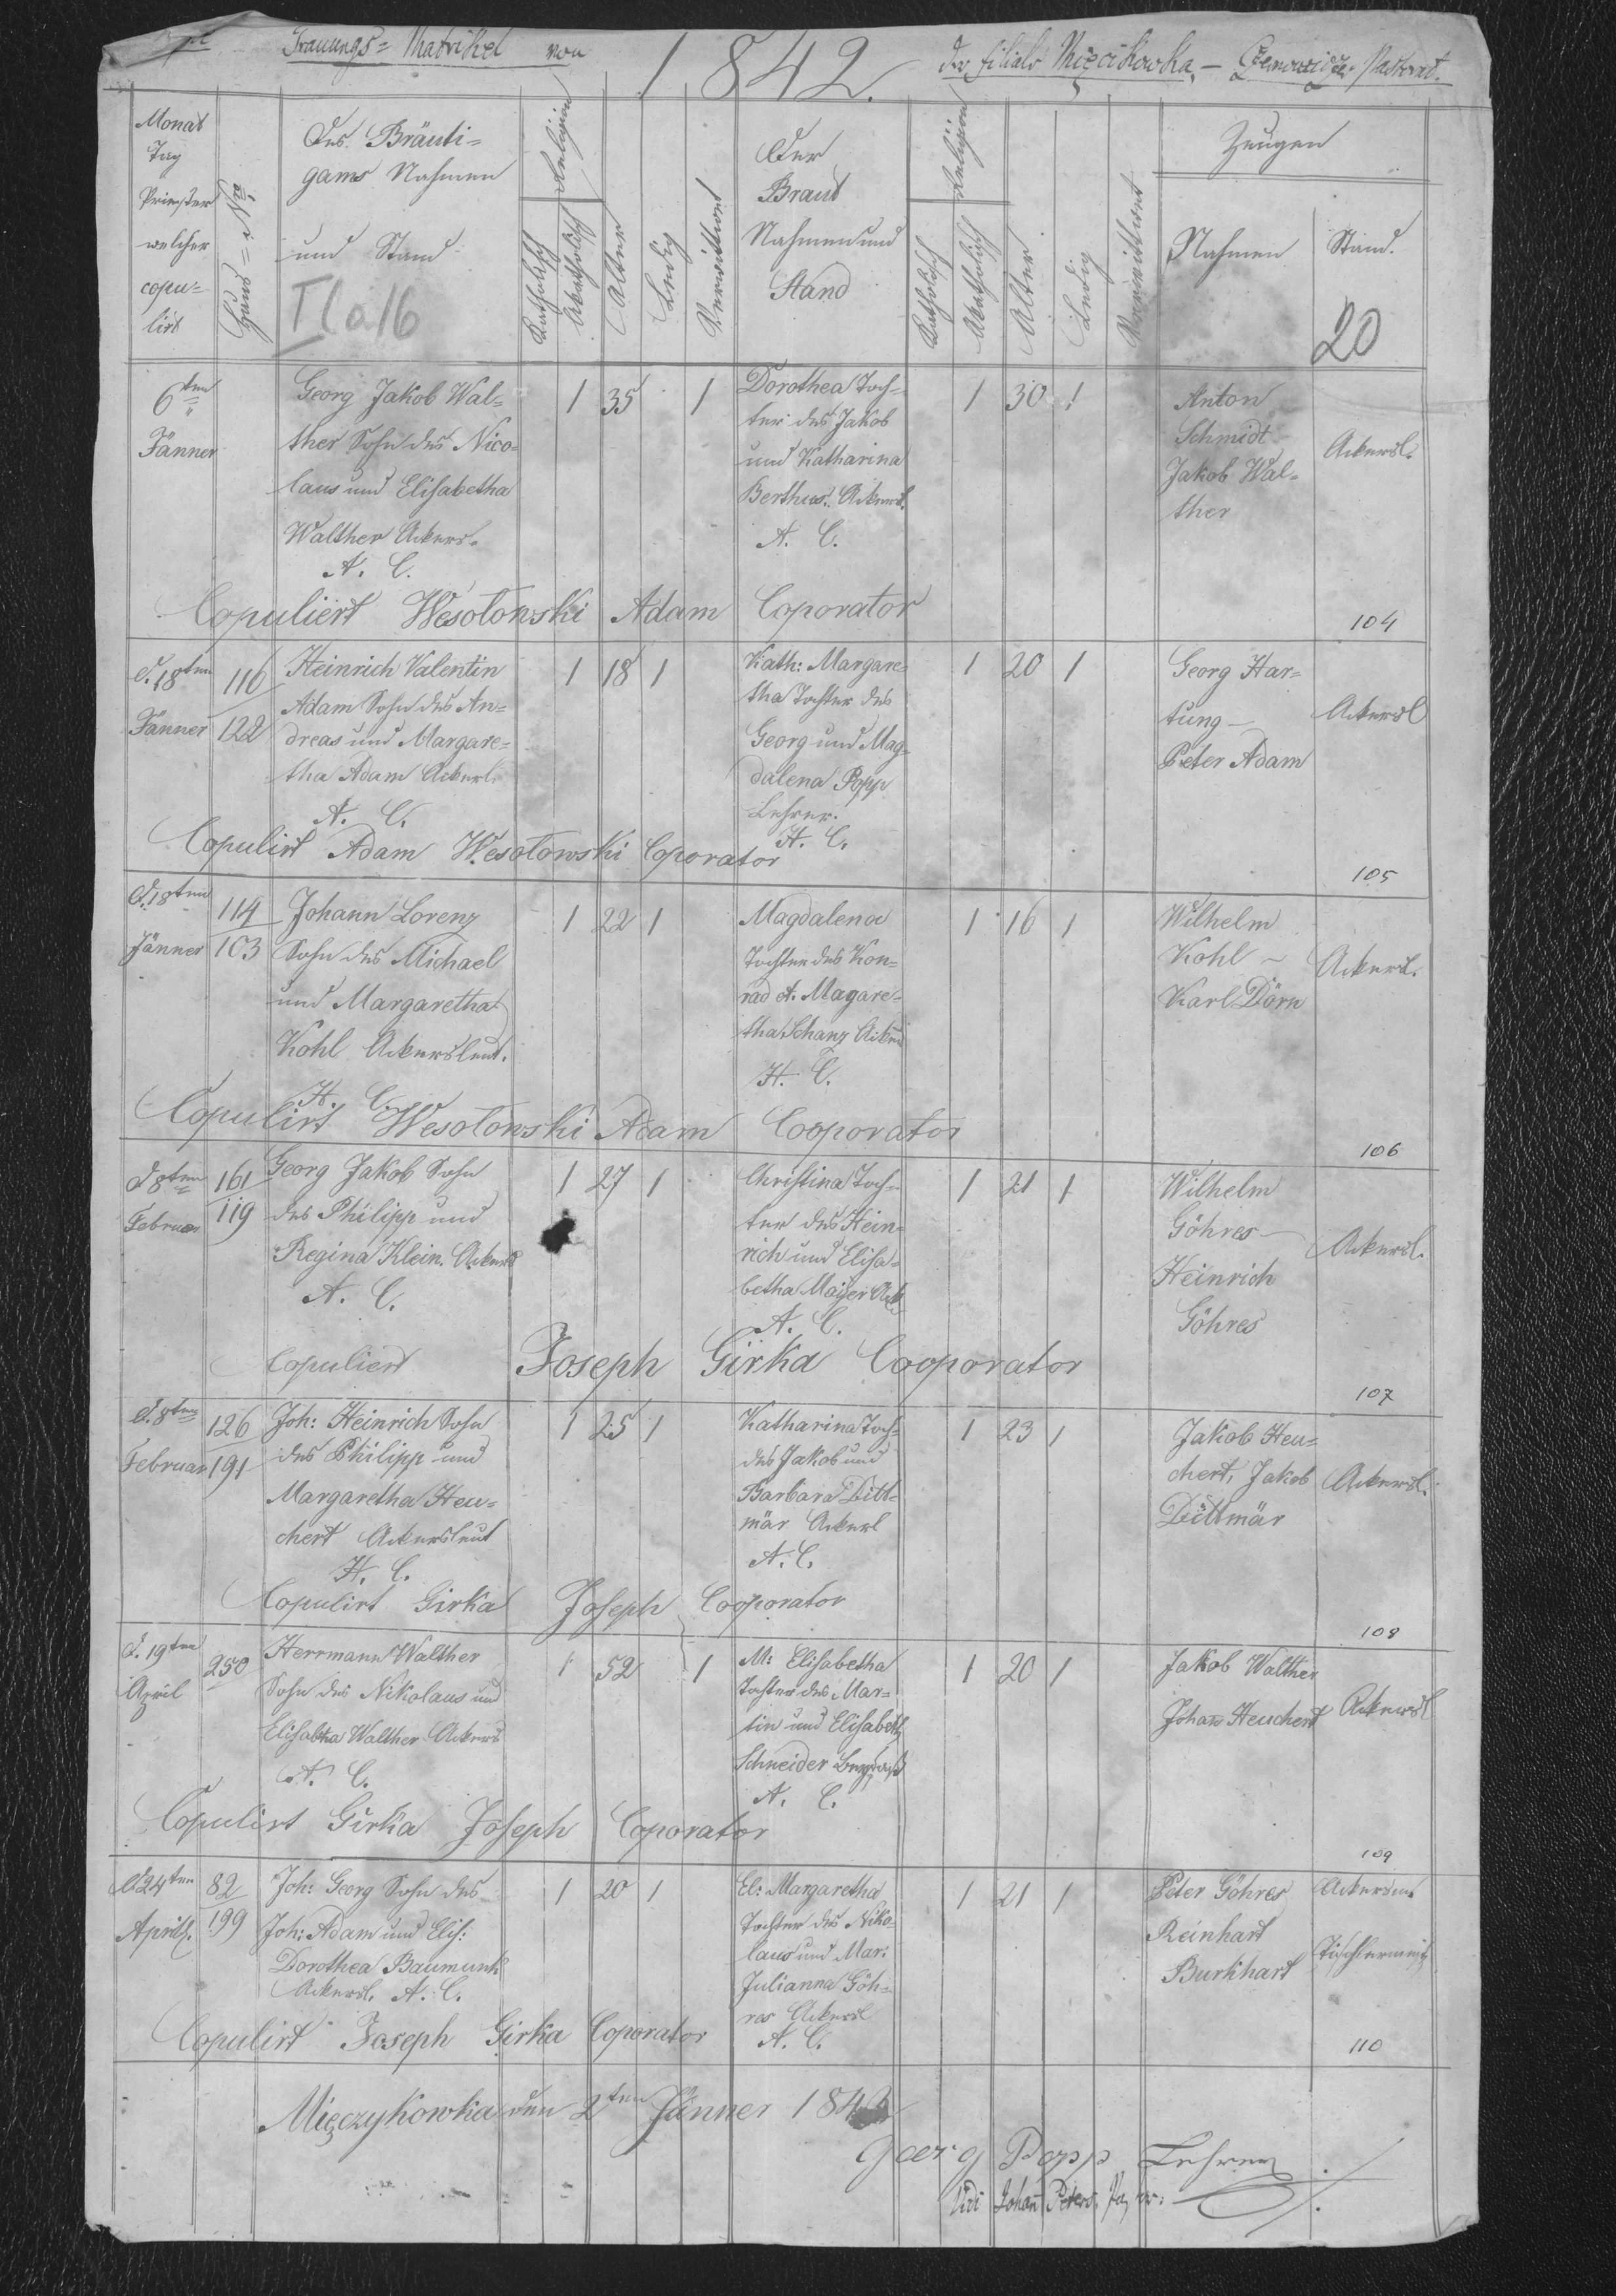 Trauungs= Matrikel von 1842. der filiale Mięcikowka, —
Monat
Tag
Priester
welcher
copu=
lirt
Haus = Nro
Des Bräuti=
gams Nahmen
und Stand
Religion
Katholisch
Akatholisch
Alter
Ledig
Verwittwet
Der
Braut
Nahmen und
Stand
Religion
Katholisch
Akatholisch
Alter
Ledig
Verwittwet
Zeugen
Nahmen
Stand.
20
6ten
Jänner
Georg Jakob Wal=
ther Sohn des Nico=
laus und Elisabetha
Walther Ackers.
A. C.
1 35 1
Dorothea Toch=
ter des Jakob
und Katharina
Berthus. Ackersl.
A. C.
1 30 1
Anton
Schmidt
Jakob Wal=
ther
Ackersl.
Copuliert Wesolowski Adam Coporator
104
d. 18ten
Jänner
116
122
Heinrich Valentin
Adam Sohn des An=
dreas und Margare=
tha Adam Ackerl.
A. C.
1 18 1
Kath: Margare=
tha Tochter des
Georg und Mag=
dalena Popp
Lehrer.
A. C.
1 20 1
Georg Har=
tung —
Peter Adam
Ackersl
Copulirt Adam Wesolowski Coporator
105
d. 18ten
Jänner
114
103
Johann Lorenz
Sohn des Michael
und Margaretha
Kohl Ackersleut.
H. C.
1 22 1
Magdalena
Tochter des Kon=
rad et. Magare=
tha Schanz
H. C.
1 16 1
Wilhelm
Kohl ~
Karl Dörn
Ackersl.
Copulirt Wesolowski Adam Cooporator
106
d 8ten
Februar
161
119
Georg Jakob Sohn
des Philipp und
Regina Klein. Ackersl
A. C.
1 27 1
Christina Toch=
ter des Hein=
rich und Elisa=
betha Maijer
A. C.
1 21 1
Wilhelm
Göhres —
Heinrich
Göhres
Ackersl.
Copuliert Joseph Girka Cooporator
107
d. 8ten
Februar
126
191
Joh: Heinrich Sohn
des Philipp und
Margaretha Heu=
chert Ackersleut
H. C.
1 25 1
Katharina Toch=
des Jakob und
Barbara Ditt=
mär Ackerl
A. C.
1 23 1
Jakob Heu=
chert, Jakob
Dittmär
Ackersl.
Copulirt Girka Joseph Cooporator
108
d. 19ten
April
250
Herrmann Walther
Sohn des Nikolaus und
Elisabtha Walther Ackers
A. C.
1 52 1
M: Elisabetha
Tochter des Mar=
tin und Elisabeth
Schneider
A. C.
1 20 1
Jakob Walther
Johan Heuchert
Ackersl
Copulirt Girka Joseph Coporator
109
d. 24ten
April.
82
199
Joh: Georg Sohn des
Joh: Adam und Elis:
Dorothea Baumunk
Ackersl. A. C.
1 20 1
El: Margaretha
Tochter des Niko=
laus und Mar:
Julianna Göh=
res Ackersl
A. C.
1 21 1
Peter Göhres
Reinhart
Burkhart
Copulirt Joseph Girka Coporator
110
Mięczykowka den 2ten Jänner 184
Georg Popp Lehrer
Johann Peters.